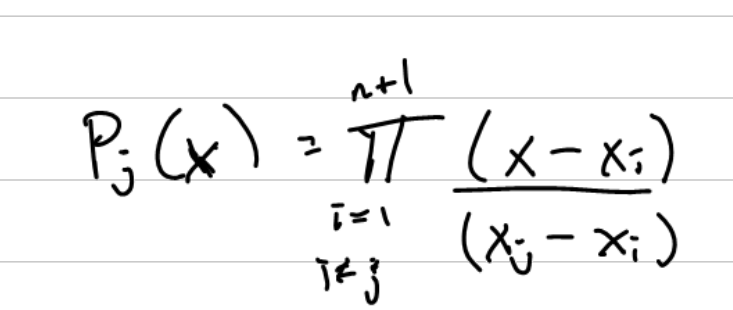 P_j(x) = \prod_{\substack{i=1 \\ i \neq j}}^{n+1} \frac{(x - x_i)}{(x_j - x_i)}